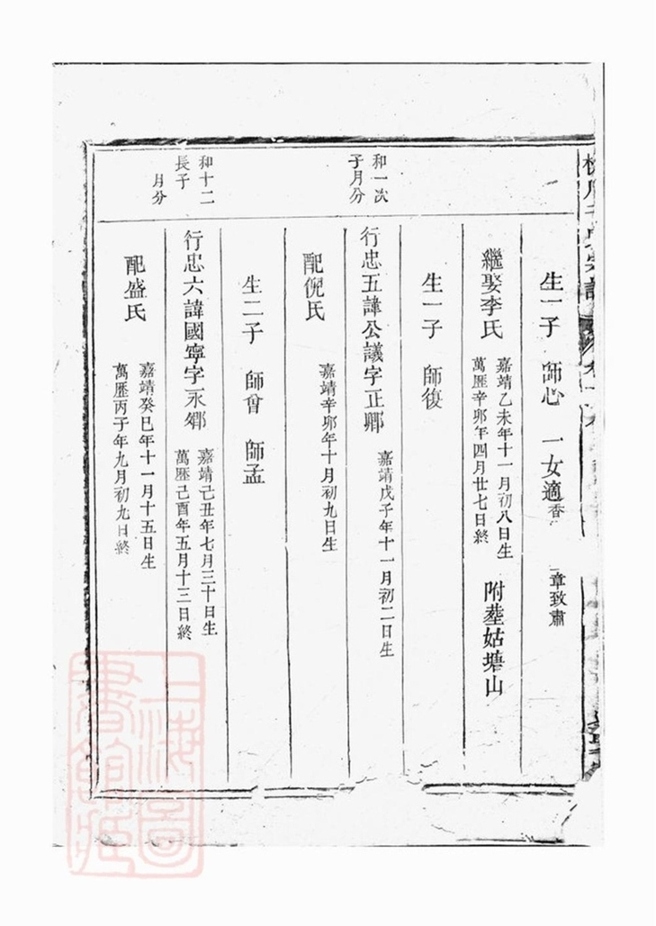 生一子 師心 一女適香 章致肅
繼娶李氏 嘉靖乙未年十一月初八日生
萬歷辛卯年四月廿七日終
附塟姑塘山
生一子 師復
和一次
子月分
行忠五諱公議字正卿 嘉靖戊子年十一月初二日生
配倪氏 嘉靖辛卯年十月初九日生
生二子 師曾 師孟
和十二
長子
月分
行忠六諱國寧字永卿 嘉靖己丑年七月三十日生
萬歷己酉年五月十三日終
配盛氏 嘉靖癸巳年十一月十五日生
萬歷丙子年九月初九日終
上海圖
書館藏